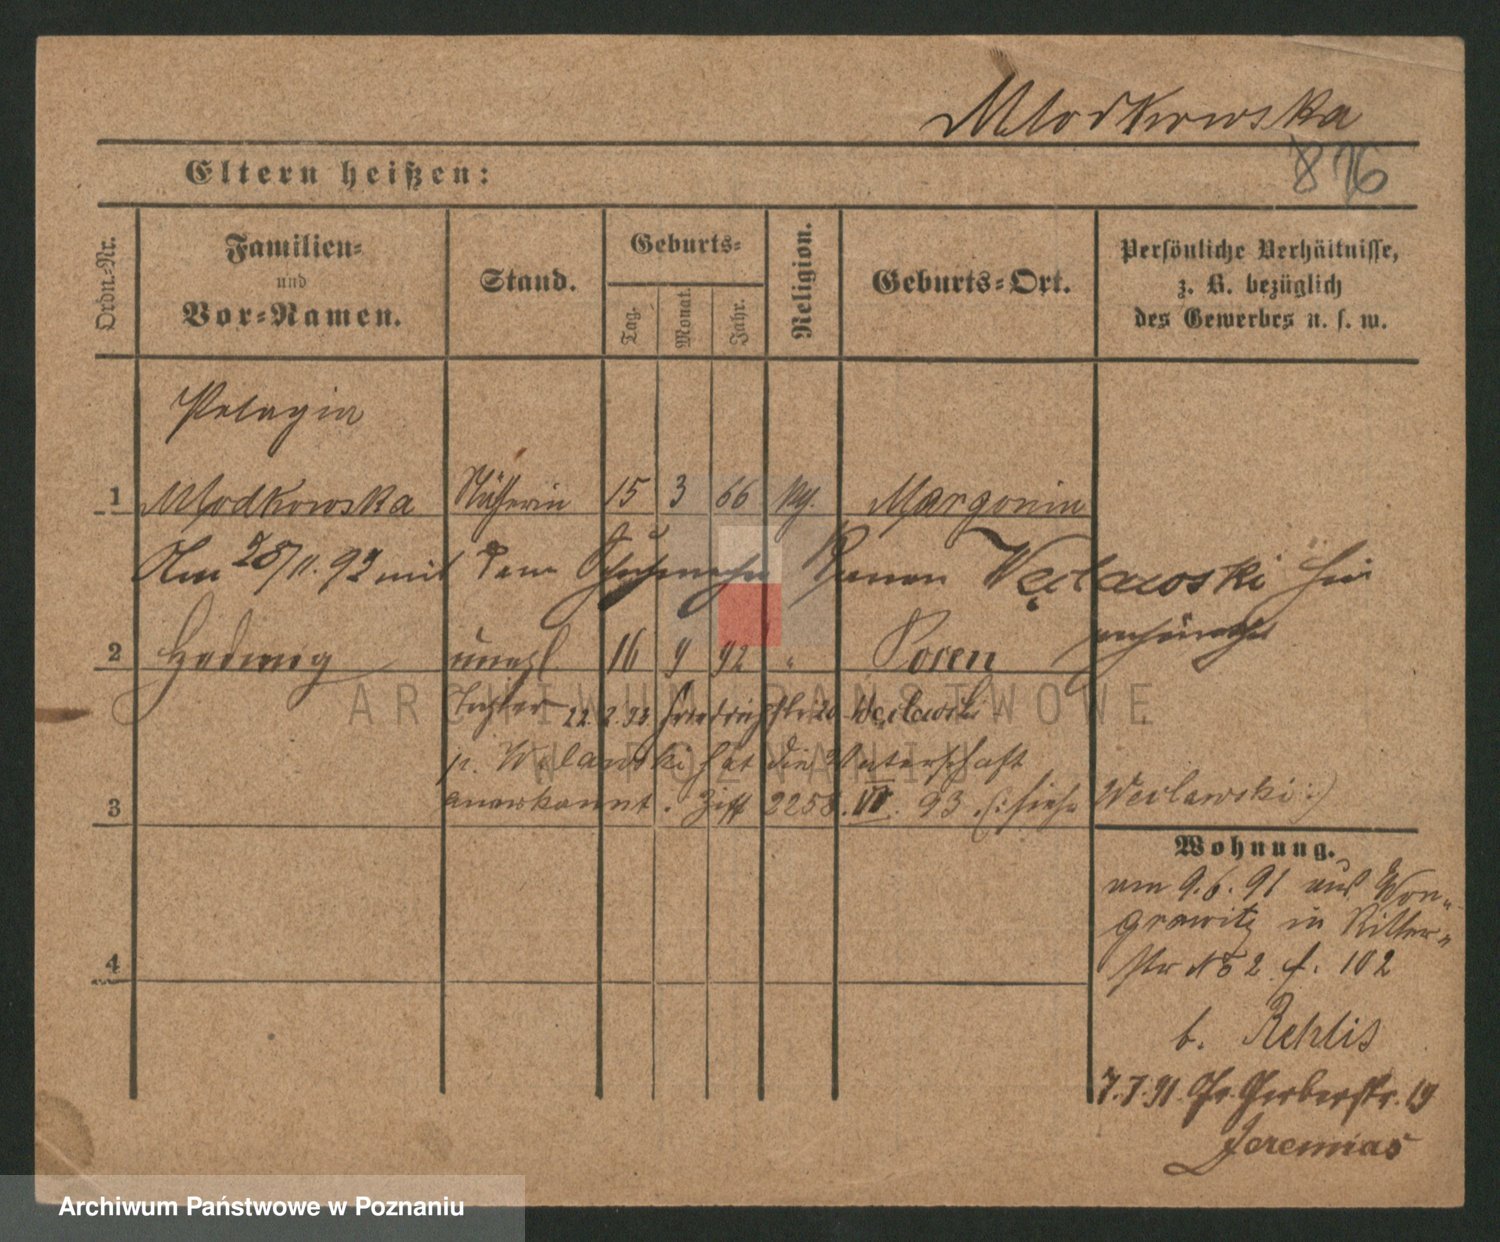 Mlodkowska
816
Eltern heißen:
Ordn.-Nr.
Familien-
und
Vor-Namen.
Stand.
Geburts-
Tag.
Monat.
Jahr.
Religion.
Geburts-Ort.
Persönliche Verhältnisse,
z. B. bezüglich
des Gewerbes u. s. w.
Pelagia
1 Mlodkowska Näherin 15 3 66 Margonin
Am 28/11. 92 mit dem Schuhmacher Roman Węclawski hier
2 Hedwig unehl. 16 9 92 " Posen
Tochter 22.2.93 Węclawski
p. Weclawski hat die Vaterschaft
3 anerkannt. 2258. VII. 93 (: siehe Weclawski :)
Wohnung.
am 9.6.91 aus Won-
growitz in Ritter-
4 str No 2 f. 102
b. Rehlis
7.7.91. Gr. Gerberstr. 19
Jeremias
ARCHIWUM PAŃSTWOWE
W POZNANIU
Archiwum Państwowe w Poznaniu